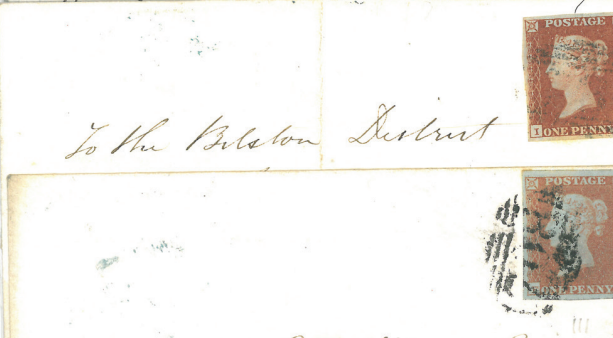 POSTAGE
I ONE PENNY
To the Bilston District
POSTAGE
ONE PENNY